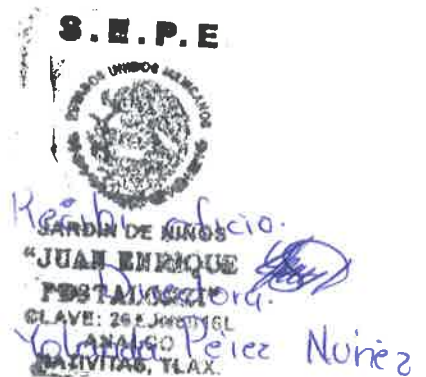 S.E.P.E
ESTADOS UNIDOS MEXICANOS
Recibí oficio.
JARDIN DE NIÑOS
"JUAN ENRIQUE
PESTALOZZI"
Directora.
CLAVE:
ANALCO
Yolanda Pérez Nuñez
NATIVITAS, TLAX.